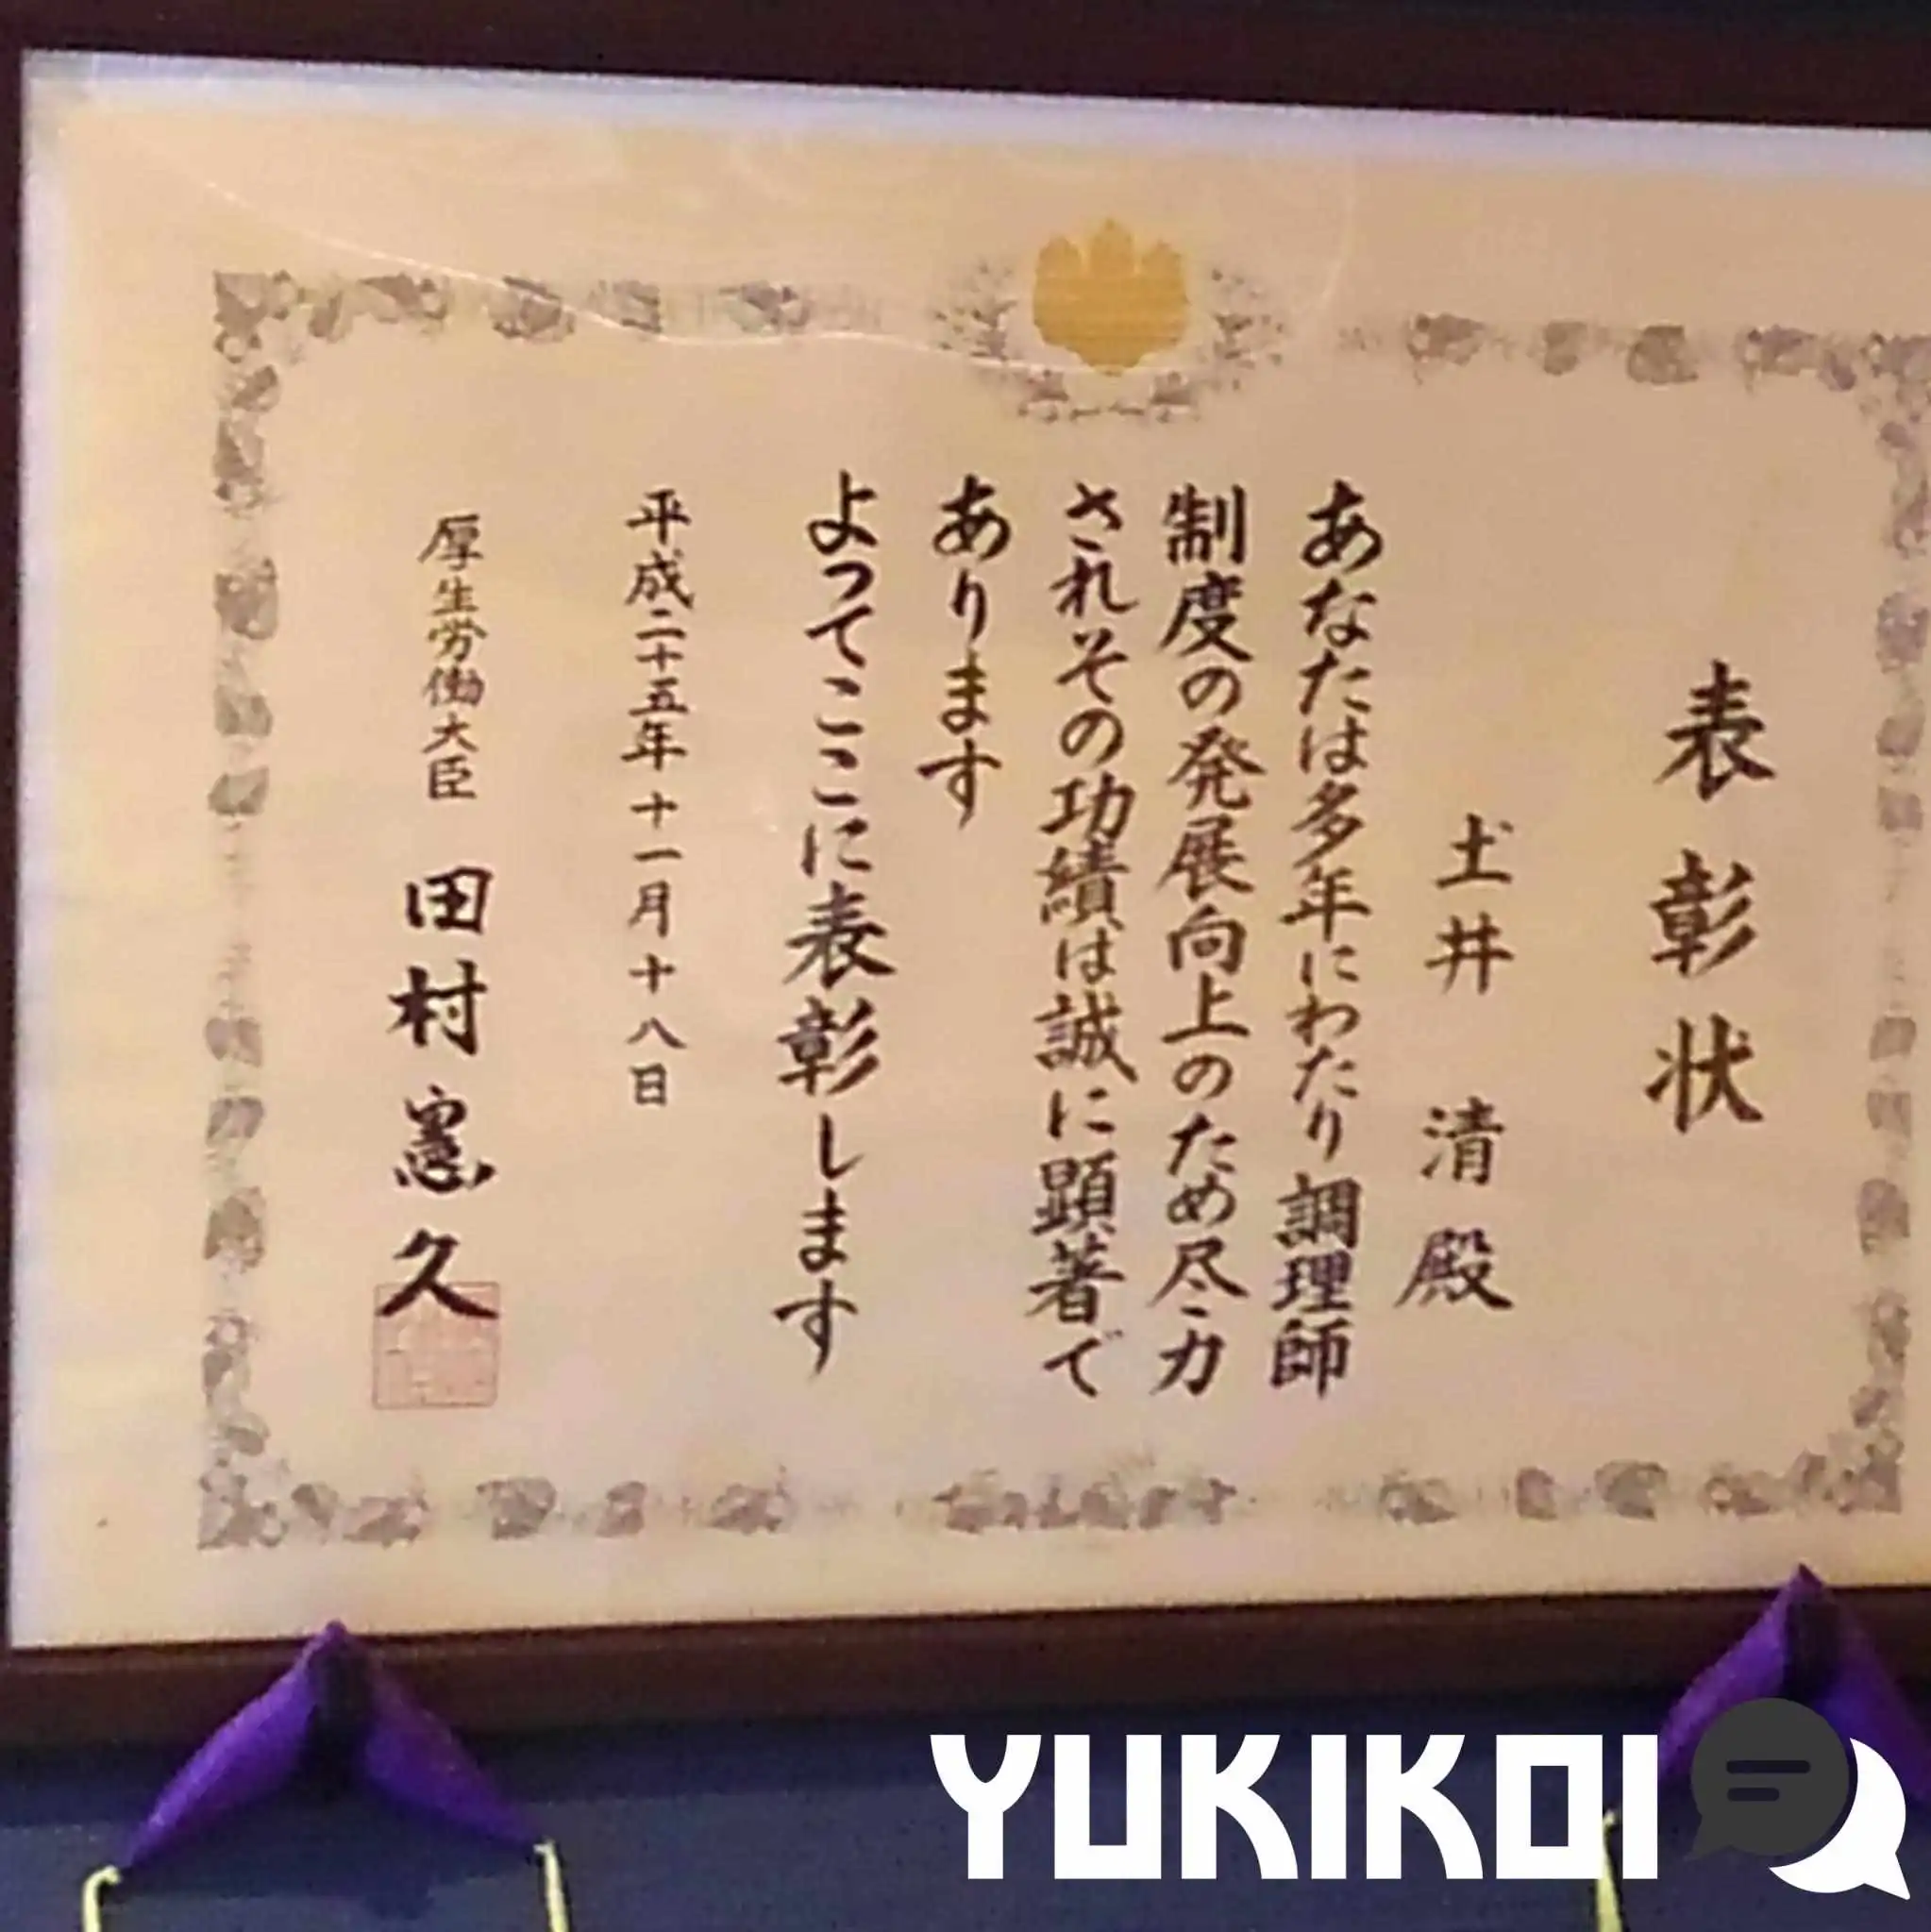 表彰状
土井 清殿
あなたは多年にわたり調理師
制度の発展向上のため尽力
されその功績は誠に顕著で
あります
よってここに表彰します
平成二十五年十一月十八日
厚生労働大臣 田村憲久
YUKIKOI